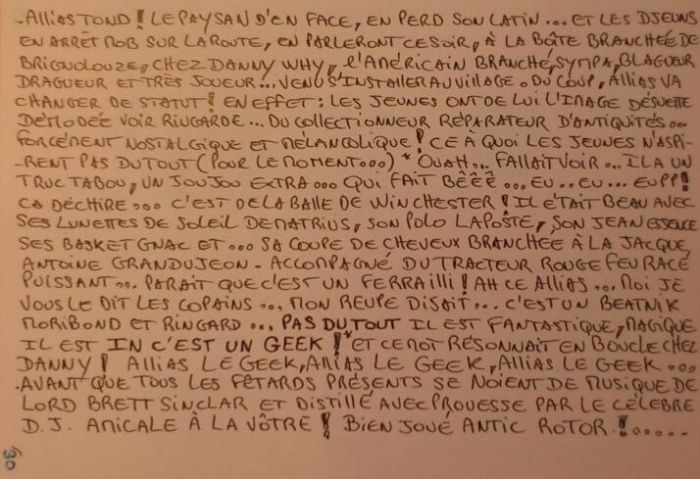 -Allias TOND ! LE PAYSAN D'EN FACE, EN PERD SON LATIN... ET LES DJEUNS,
EN ARRÊT MOB SUR LA ROUTE, EN PARLERONT CE SOIR, À LA BOÎTE BRANCHÉE DE
BRIGNOLOUZE, CHEZ DANNY WHY, L'AMÉRICAIN BRANCHÉ, SYMPA, BLAGUEUR
DRAGUEUR ET TRÈS JOUEUR... VENU S'INSTALLER AU VILLAGE. DU COUP, ALLIAS VA
CHANGER DE STATUT ! EN EFFET : LES JEUNES ONT DE LUI L'IMAGE DÉSUETTE
DÉMODÉE VOIR RINGARDE... DU COLLECTIONNEUR RÉPARATEUR D'ANTIQUITÉS...
FORCÉMENT NOSTALGIQUE ET MÉLANCOLIQUE ! CE À QUOI LES JEUNES N'ASPI-
-RENT PAS DU TOUT (POUR LE MOMENT...) * OUAH... FALLAIT VOIR... IL A UN
TRUC TABOU, UN JOUJOU EXTRA... QUI FAIT BÊÊÊ... EU.. EU... EUPP!
CA DÉCHIRE... C'EST DE LA BALLE DE WINCHESTER ! IL ÉTAIT BEAU AVEC
SES LUNETTES DE SOLEIL DEMATRIUS, SON POLO LAPOSTE, SON JEAN ESSENCE
SES BASKET GNAC ET... SA COUPE DE CHEVEUX BRANCHÉE À LA JACQUE
ANTOINE GRANDUJEON - ACCOMPAGNÉ DU TRACTEUR ROUGE FEU RACÉ
PUISSANT... PARAIT QUE C'EST UN FERRAILLI ! AH CE ALLIAS... MOI JE
VOUS LE DIT LES COPAINS... MON REUPE DISAIT... C'EST UN BEATNIK
MORIBOND ET RINGARD... PAS DU TOUT IL EST FANTASTIQUE, MAGIQUE
IL EST IN C'EST UN GEEK ! * ET CE MOT RÉSONNAIT EN BOUCLE CHEZ
DANNY ! ALLIAS LE GEEK, ALLIAS LE GEEK, ALLIAS LE GEEK...
.AVANT QUE TOUS LES FÊTARDS PRÉSENTS SE NOIENT DE MUSIQUE DE
LORD BRETT SINCLAR ET DISTILLÉ AVEC PROUESSE PAR LE CÉLEBRE
D.J. AMICALE À LA VÔTRE ! BIEN JOUÉ ANTIC ROTOR !.....
30